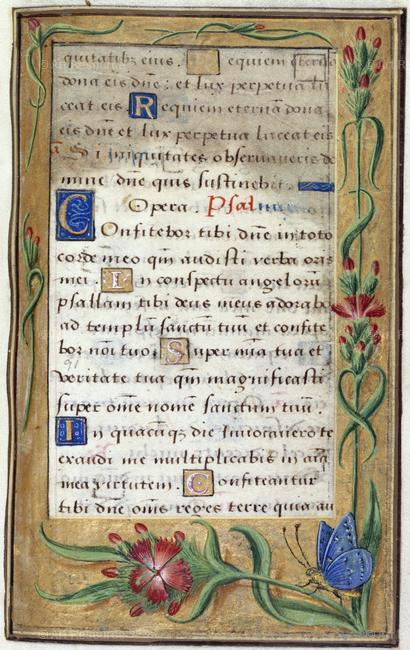 quitatibꝫ eius. Requiem eterna
dona eis dñe: et lux perpetua lu
ceat eis Requiem eternā dona
eis dñe et lux perpetua luceat eis
Si iniquitates observaveris do
mine dñe quis sustinebit.
Opera. Psalmus
Confitebor tibi dñe in toto
corde meo qm̄ audisti verba oris
mei. In conspectu angelorū
psallam tibi deus meus adorabo
ad templū sanctū tuū et confite
bor noī tuo. Super mīa tua et
veritate tua qm̄ magnificasti
super om̄e nomē sanctum tuū.
In quacūqꝫ die Invocavero te
exaudi me multiplicabis in aīa
mea virtutem. Confiteantur
tibi dñe om̄s reges terre quia au